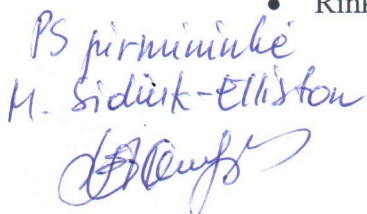 • Rink
PS pirmininkė
M. Sidiuk-Elliston